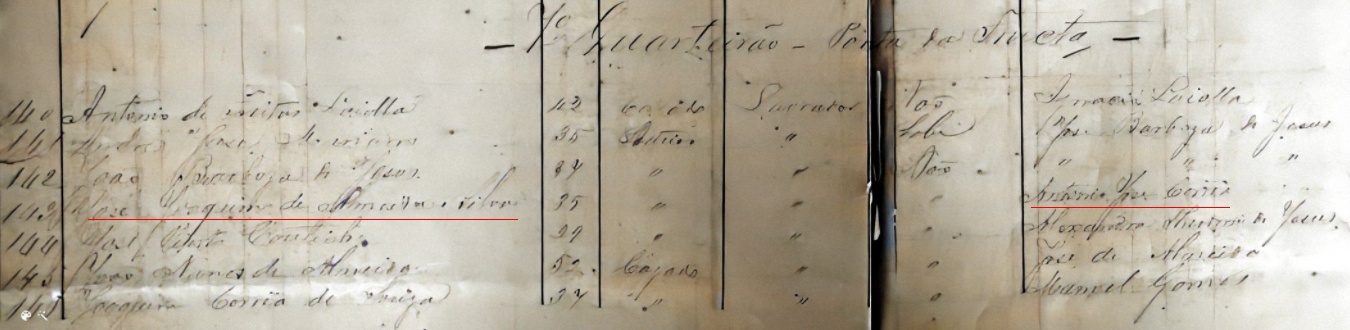 - 7º Quarteirão - Ponta da Fructa -
140 Antonio de Freitas Loiolla 42 Casado Lavrador Não Ignacio Loiolla
141 José 35 Solteiro " Sabe José Barboza de Jesus
142 João Barboza de Jesus 37 " " Não " " "
143 José Joaquim de Almeida e Silva 35 " " " Antonio José Corrêa
144 José Pinto Coutinho 29 " " " Alexandre de Jesus
145 João Nunes de Almeida 52 Casado " " José de Almeida
146 Joaquim Corrêa de Souza 37 " " " Manoel Gomes